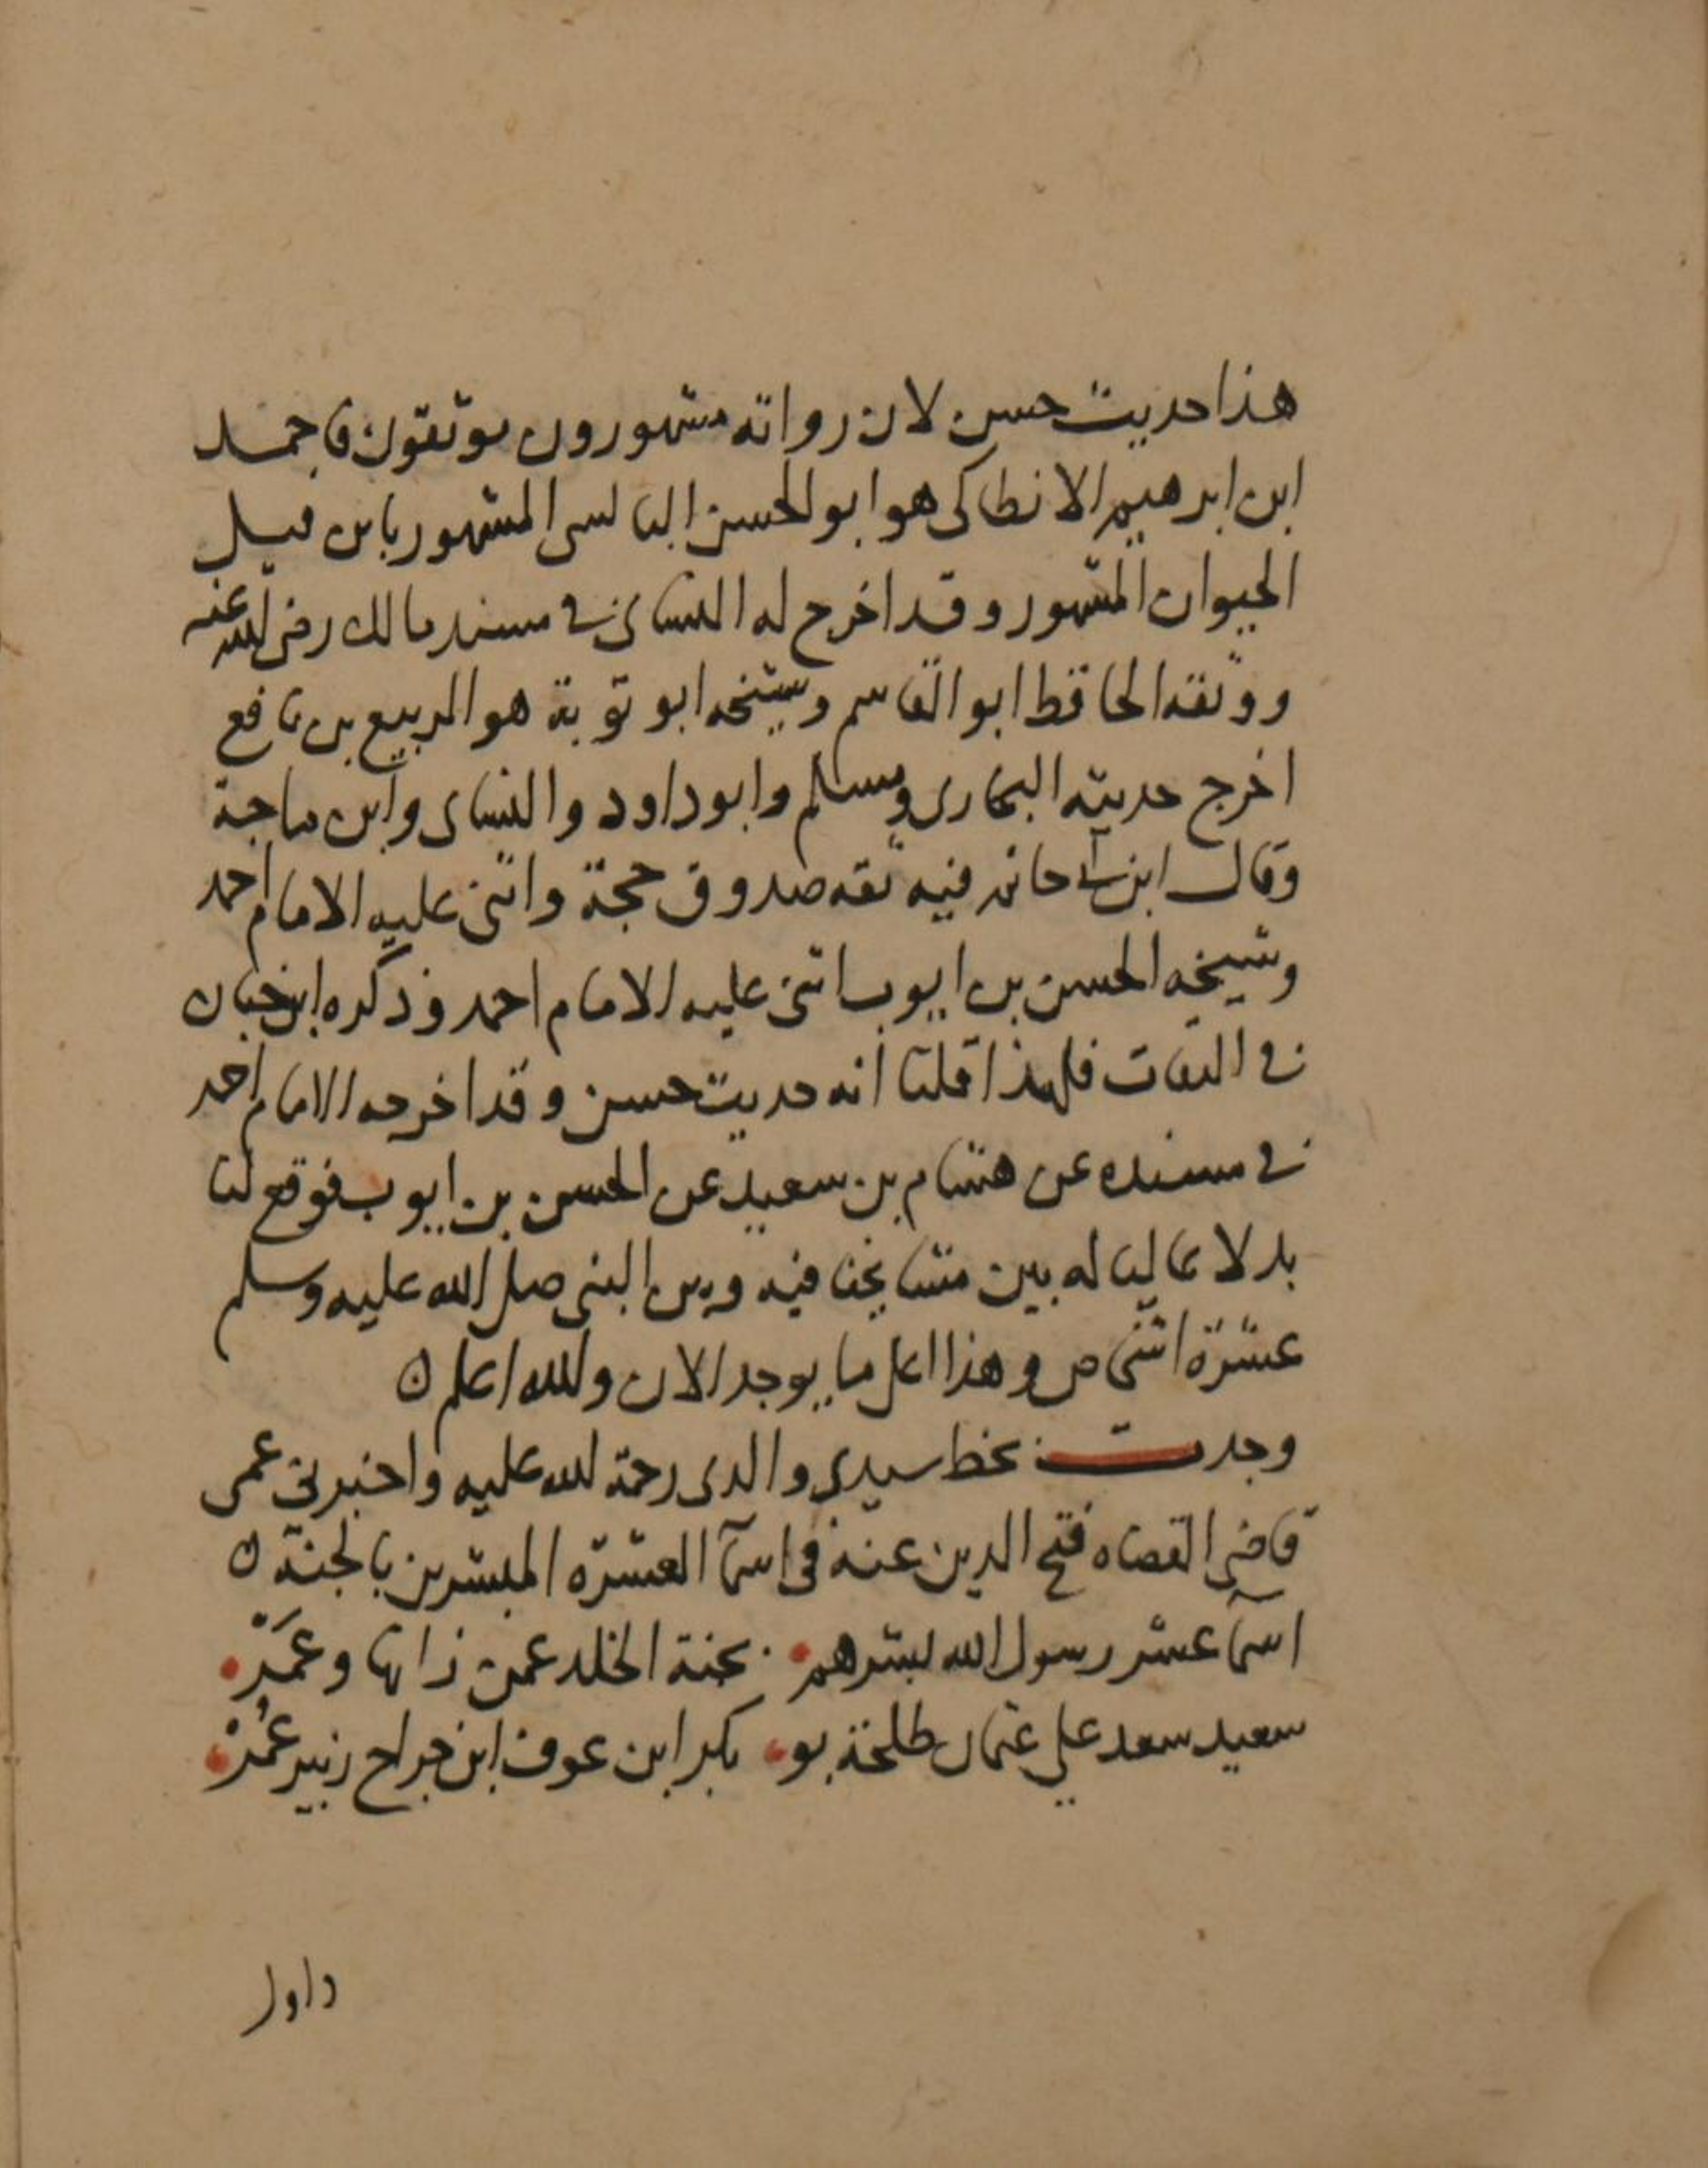 هذا حديث حسن لان رواته مشهورون موثقون فاحمد
ابن ابرهيم الانطاكى هو ابو الحسن البالسى المشهور بابن فيل
الحيوان المشهور وقد اخرج له النساى فى مسند مالك رضى الله عنه
ووثقه الحافظ ابو القاسم وشيخه ابو توبة هو الربيع بن نافع
اخرج حديثه البخارى ومسلم وابو داود والنساى وابن ماجة
وقال ابن ابى حاتم فيه ثقه صدوق حجة واثنى عليه الامام احمد
وشيخه الحسن بن ايوب اثنى عليه الامام احمد وذكره ابن حبان
فى الثقات فلهذا قلنا انه حديث حسن وقد اخرجه الامام احمد
فى مسنده عن هشام بن سعيد عن الحسن بن ايوب فوقع لنا
بدلا عاليا له بين مشايخنا فيه وبين النبى صلى الله عليه وسلم
عشرة اشخاص وهذا اعلى ما يوجد الان والله اعلم ن
وجدت بخط سيدى والدى رحمة الله عليه واخبرنى عمى
قاضى القضاه فتح الدين عنه فى اسما العشره المبشرين بالجنة ن
اسما عشر رسول الله بشرهم . بجنة الخلد عمن زانها وعمر .
سعيد سعد علي عثمان طلحة بو . بكر ابن عوف ابن جراح زبير عمر .
داول